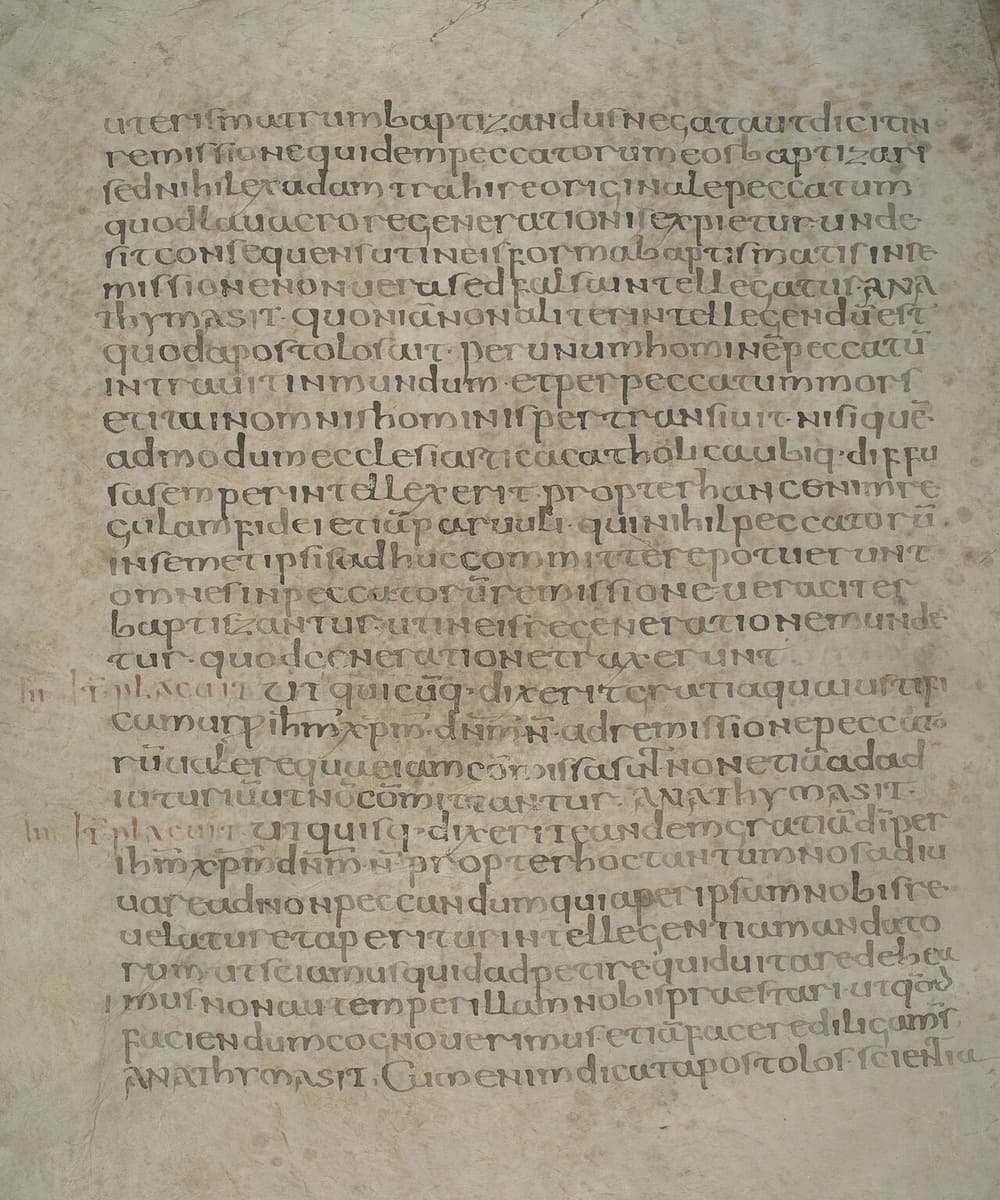 uterismatrumbaptizandusnegatautdicitin
remissionequidempeccatorumeosbaptizari
sednihilexadamtrahireoriginalepeccatum
quodlauacroregenerationisexpietur·unde
sitconsequensutineisformabaptismatisinre
missionenonuerasedfalsaintellegatur·ANA
ThYMASIT·quoniānonaliterintellegendūest
quodapostolosait·perunumhominēpeccatū
intrauitinmundum·etperpeccatummors
etitainomnishominispertransiuit·nisiquē
admodumecclesiasticacatholicaubiq·diffu
sasemperintellexerit·propterhancenimre
gulamfideietiāparuuli·quinihilpeccatorū·
insemetipsisadhuccommitterepotuerunt
omnesinpeccatorūremissioneueraciter
baptizantur·utineisregenerationemunde
tur·quodgenerationetraxerunt
iii Iť placuit Ut quicūq·dixeritgratiaquaiustifi
camurp̄ihm̄xpm̄·dnm̄·n̄·adremissionepeccato
rūualerequaeiamcommissasūtnonetiāadad
iuturiūutnōcōmittantur·ANAThYMASIT·
iiii Iť placuit Ut quisq·dixeriteandemgratiādīper
ihm̄xpm̄dnm̄·n̄·propterhoctantumnosadiu
uareadnonpeccandumquiaperipsumnobisre
ueleturetaperiturintellegentiamandato
rumutsciamusquidadpetirequiduitaredebea
musnonautemperillamnobispraestari·utqod
faciendumcognouerimusetiāfacerediligams
ANAThYMASIT·Cumenimdicatapostolosscientia